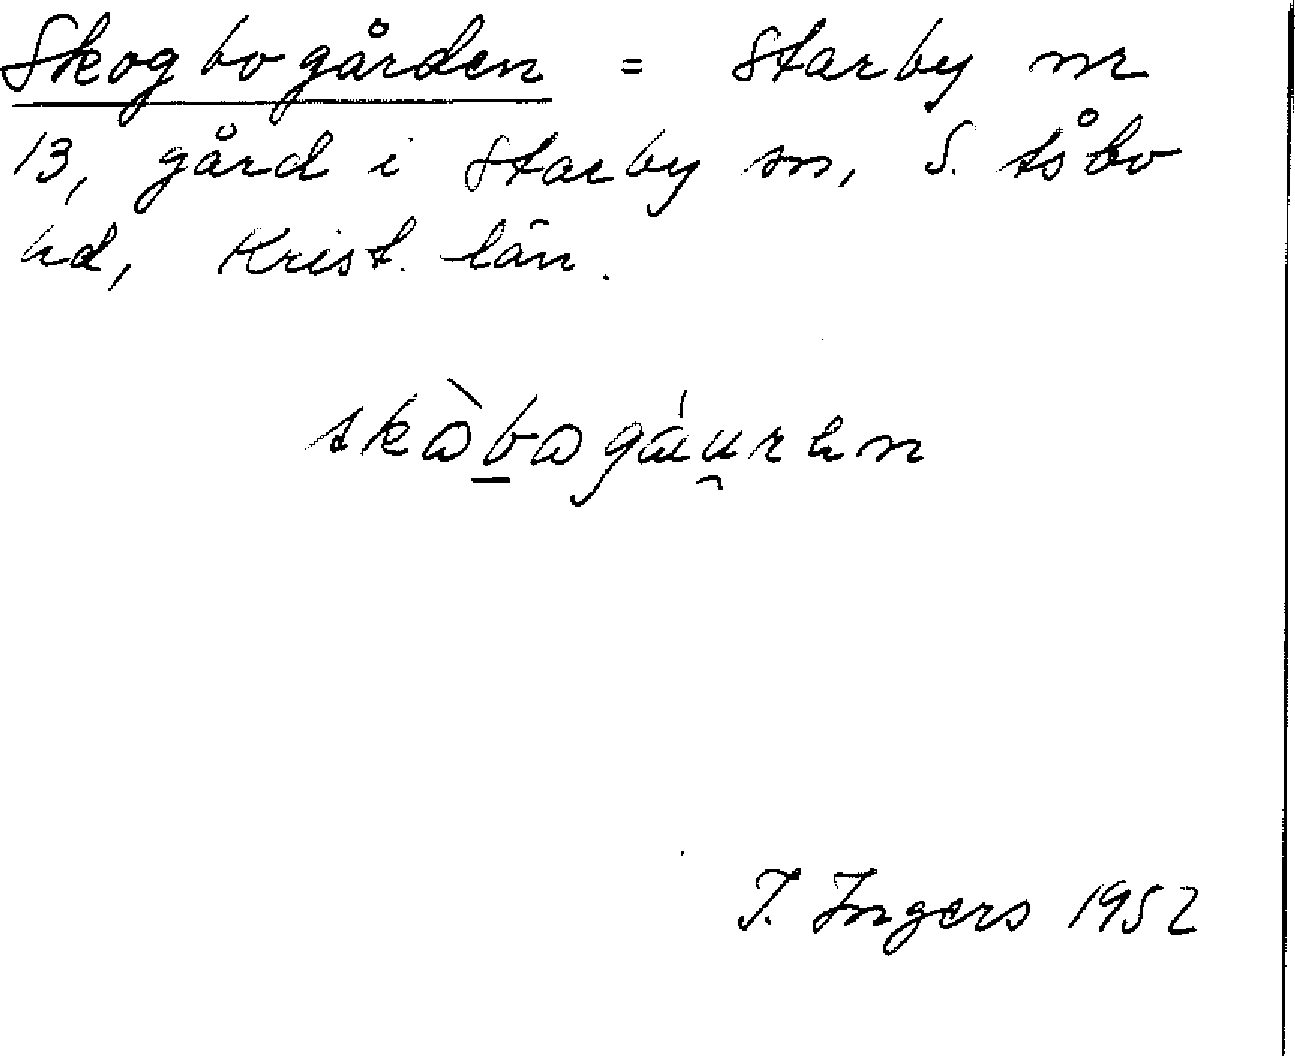 Skogbogården = Starby nr
13, gård i Starby sn, S. Åsbo
hd, Krist. län.
I. Ingers 1952